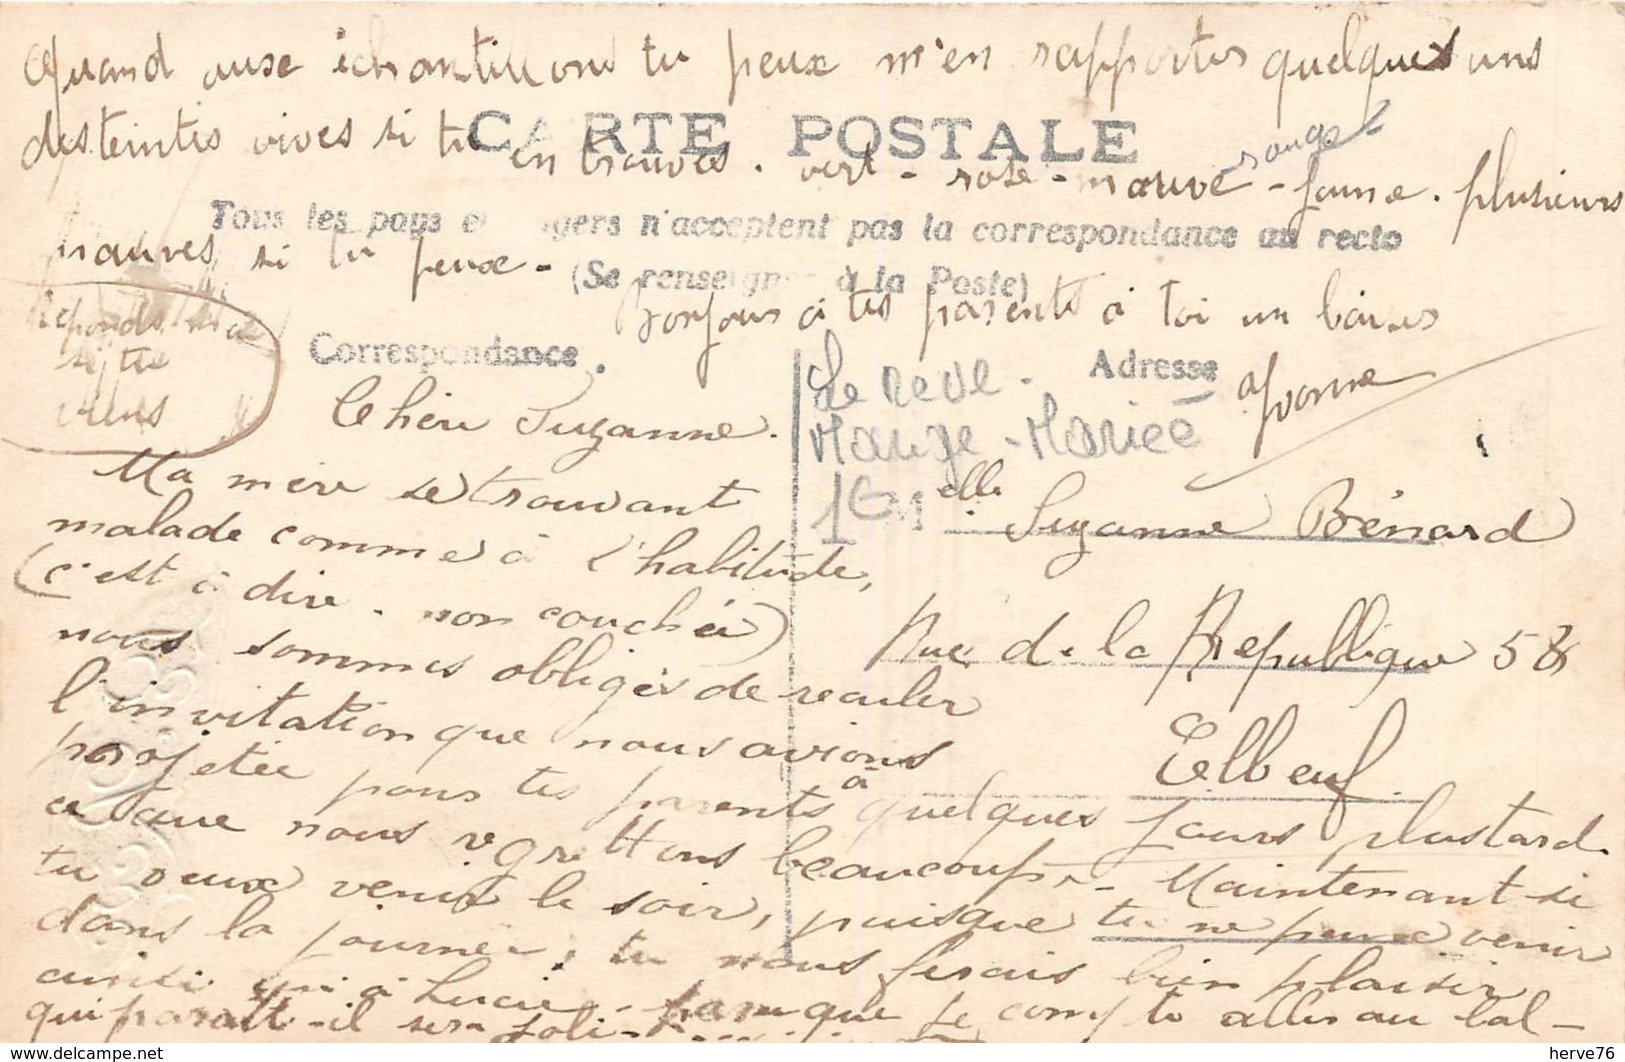 Quand aux échantillons tu peux m'en rapporter quelques uns
des teintes vives si tu en trouves. vert - rose - mauve - jaune. plusieurs
rouge
mauves si tu peux -
CARTE POSTALE
Tous les pays n'acceptent pas la correspondance au recto
(Se à la Poste)
Bonjour à tes parents à toi un baiser
Yvonne
Réponds
si tu
viens
Correspondance.
Adresse
Le reve -
Mariée
Chère Suzanne.
Ma mère se trouvant
malade comme à l'habitude,
(c'est à dire - non couchée)
nous sommes obligés de reculer
l'invitation que nous avions
projetée pour tes parents à quelques jours plus tard
ce que nous regrettons beaucoup. - Maintenant si
tu veux venir le soir, puisque tu ne peux venir
dans la journée, tu nous ferais bien plaisir
ainsi qu'à Lucie. que je compte aller au bal -
qui paraît-il sera joli -
elle Suzanne Bénard
Rue de la République 58
Elbeuf
herve76